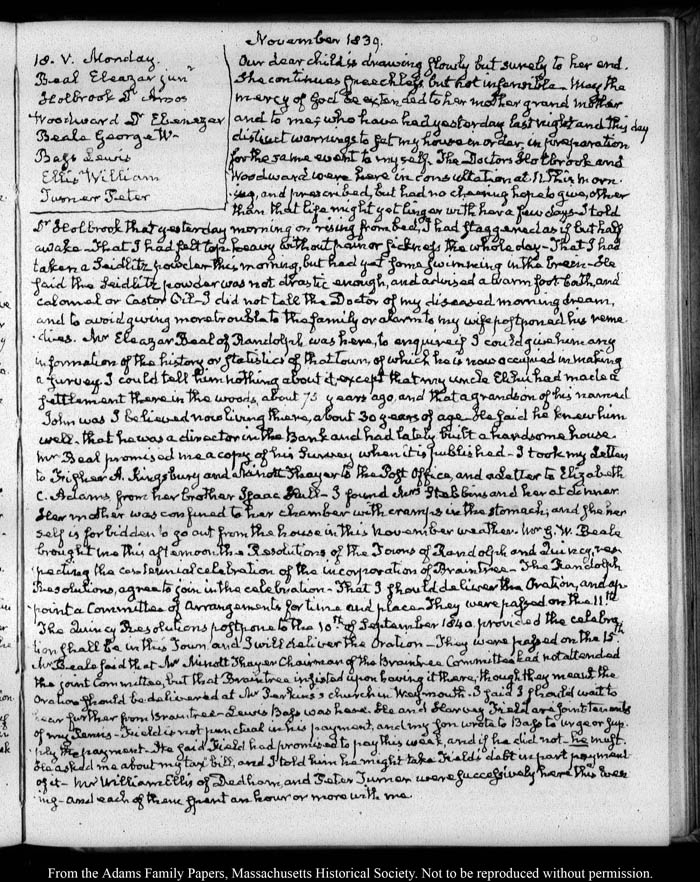 November 1839.
18. V. Monday.
Beal Eleazar junr
Holbrook Dr Amos
Woodward Dr Ebenezer
Beale George W.
Bass Lewis
Ellis William
Turner Peter
Our dear child is drawing slowly but surely to her end.
She continues speechless but not insensible. May the
mercy of God be extended to her mother grandmother
and to me, who have had yesterday last night and this day
distinct warnings to set my house in order, in preparation
for the same event to myself. The Doctors Holbrook and
Woodward were here in consultation at 11. this morn-
ing, and prescribed, but had no cheering hope to give, other
than that life might yet linger with her a few days. I told
Dr Holbrook that yesterday morning on rising from bed, I had staggered as if but half
awake. That I had felt top-heavy without pain or sickness the whole day. That I had
taken a Seidlitz powder this morning, but had yet some swimming in the brain. He
said the Seidlitz powder was not drastic enough, and advised a warm foot bath, and
Calomel or Castor Oil. I did not tell the Doctor of my diseased morning dream,
and to avoid giving more trouble to the family or alarm to my wife postponed his reme-
dies. Mr Eleazar Beal of Randolph was here, to enquire if I could give him any
information of the history or statistics of that town, of which he is now occupied in making
a survey. I could tell him nothing about it, except that my uncle Elihu had made a
settlement there in the woods, about 75 years ago, and that a grandson of his named
John was I believed now living there, about 30 years of age. He said he knew him
well. that he was a director in the Bank and had lately built a handsome house.
Mr Beal promised me a copy of his Survey when it is published. I took my Letters
to Fisher A. Kingsbury and Minott Thayer to the Post Office, and a Letter to Elizabeth
C. Adams from her brother Isaac Hull. I found Mrs Stebbins and her at dinner.
Her mother was confined to her chamber with cramps in the stomach; and she her-
self is forbidden to go out from the house in this November weather. Mr G. W. Beale
brought me this afternoon the Resolutions of the Towns of Randolph and Quincy, res-
pecting the centennial celebration of the incorporation of Braintree. The Randolph
Resolutions, agree to join in the celebration. That I should deliver the Oration, and ap-
point a Committee of Arrangements for time and place. They were passed on the 11th
The Quincy Resolutions postpone to the 10th of September 1840. provided the celebra-
tion shall be in this Town and I will deliver the Oration. They were passed on the 15th
Mr Beale said that Mr Minott Thayer Chairman of the Braintree Committee had not attended
the joint Committee, but that Braintree insisted upon having it there, though they meant the
Oration should be delivered at Mr Perkins's church in Weymouth. I said I should wait to
hear further from Braintree. Lewis Bass was here. He and Harvey Field are joint tenants
of my Farms. Field is not punctual in his payment, and my son wrote to Bass to urge or sup-
ply the payment. He said Field had promised to pay this week, and if he did not, he must.
He asked me about my tax bill, and I told him he might take Field's debt in part payment
of it. Mr William Ellis of Dedham, and Peter Turner were successively here this even-
ing. and each of them spent an hour or more with me.
From the Adams Family Papers, Massachusetts Historical Society. Not to be reproduced without permission.